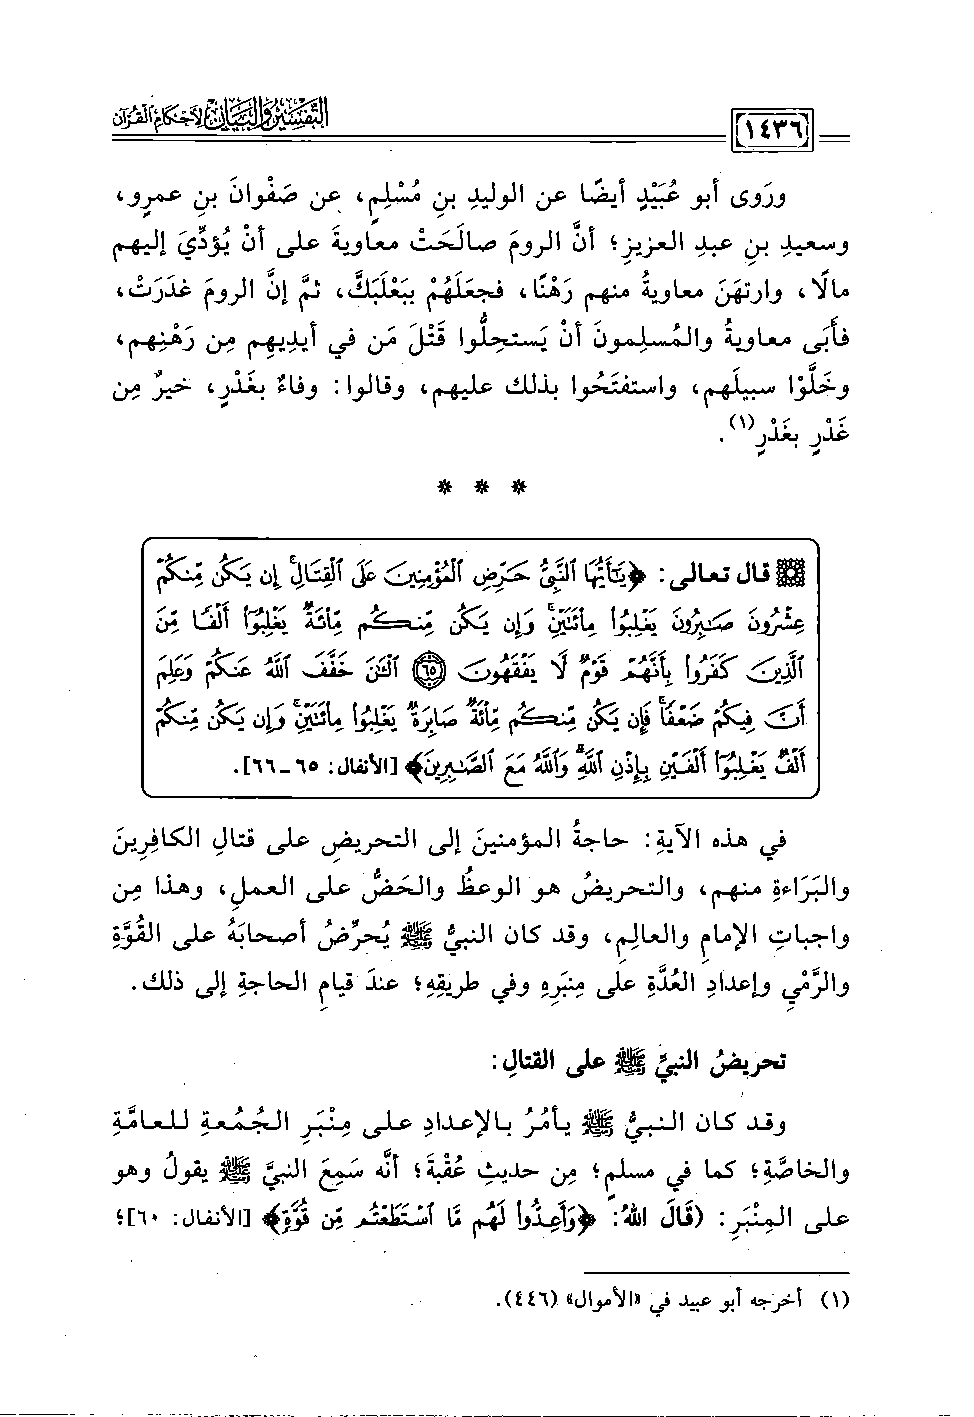 التفسير والبيان لأحكام القرآن
١٤٣٦
ورَوى أبو عُبَيْدٍ أيضًا عن الوليدِ بنِ مُسْلِمٍ، عن صَفْوانَ بنِ عمرٍو،
وسعيدِ بنِ عبدِ العزيزِ؛ أنَّ الرومَ صالَحَتْ معاويةَ على أنْ يُؤدِّيَ إليهم
مالًا، وارتهَنَ معاويةُ منهم رَهْنًا، فجعَلَهُمْ ببَعْلَبَكَّ، ثمَّ إنَّ الرومَ غدَرَتْ،
فأَبَى معاويةُ والمُسلِمونَ أنْ يَستحِلُّوا قَتْلَ مَن في أيدِيهِم مِن رَهْنِهم،
وخَلَّوْا سبيلَهم، واستفتَحُوا بذلك عليهم، وقالوا: وفاءٌ بغَدْرٍ، خيرٌ مِن
غَدْرٍ بغَدْرٍ(١).
* * *
قال تعالى: ﴿يَٰٓأَيُّهَا ٱلنَّبِىُّ حَرِّضِ ٱلْمُؤْمِنِينَ عَلَى ٱلْقِتَالِ ۚ إِن يَكُن مِّنكُمْ
عِشْرُونَ صَٰبِرُونَ يَغْلِبُوا۟ مِا۟ئَتَيْنِ ۚ وَإِن يَكُن مِّنكُم مِّا۟ئَةٌ يَغْلِبُوٓا۟ أَلْفًا مِّنَ
ٱلَّذِينَ كَفَرُوا۟ بِأَنَّهُمْ قَوْمٌ لَّا يَفْقَهُونَ ﴿٦٥﴾ ٱلْـَٰٔنَ خَفَّفَ ٱللَّهُ عَنكُمْ وَعَلِمَ
أَنَّ فِيكُمْ ضَعْفًا ۚ فَإِن يَكُن مِّنكُم مِّا۟ئَةٌ صَابِرَةٌ يَغْلِبُوا۟ مِا۟ئَتَيْنِ ۚ وَإِن يَكُن مِّنكُمْ
أَلْفٌ يَغْلِبُوٓا۟ أَلْفَيْنِ بِإِذْنِ ٱللَّهِ ۗ وَٱللَّهُ مَعَ ٱلصَّٰبِرِينَ﴾ [الأنفال: ٦٥ـ٦٦].
في هذه الآيةِ: حاجةُ المؤمنينَ إلى التحريضِ على قتالِ الكافِرِينَ
والبَرَاءةِ منهم، والتحريضُ هو الوعظُ والحَضُّ على العملِ، وهذا مِن
واجباتِ الإمامِ والعالِمِ، وقد كان النبيُّ ﷺ يُحرِّضُ أصحابَهُ على القُوَّةِ
والرَّمْيِ وإعدادِ العُدَّةِ على مِنبَرِهِ وفي طريقِهِ؛ عندَ قيامِ الحاجةِ إلى ذلك.
تحريضُ النبيِّ ﷺ على القتالِ:
وقد كان النبيُّ ﷺ يأمُرُ بالإعدادِ على مِنْبَرِ الجُمُعةِ للعامَّةِ
والخاصَّةِ؛ كما في مسلمٍ؛ مِن حديثِ عُقْبةَ؛ أنَّه سَمِعَ النبيَّ ﷺ يقولُ وهو
على المِنْبَرِ: (قَالَ اللهُ: ﴿وَأَعِدُّوا۟ لَهُم مَّا ٱسْتَطَعْتُم مِّن قُوَّةٍ﴾ [الأنفال: ٦٠]؛
(١) أخرجه أبو عبيد في «الأموال» (٤٤٦).